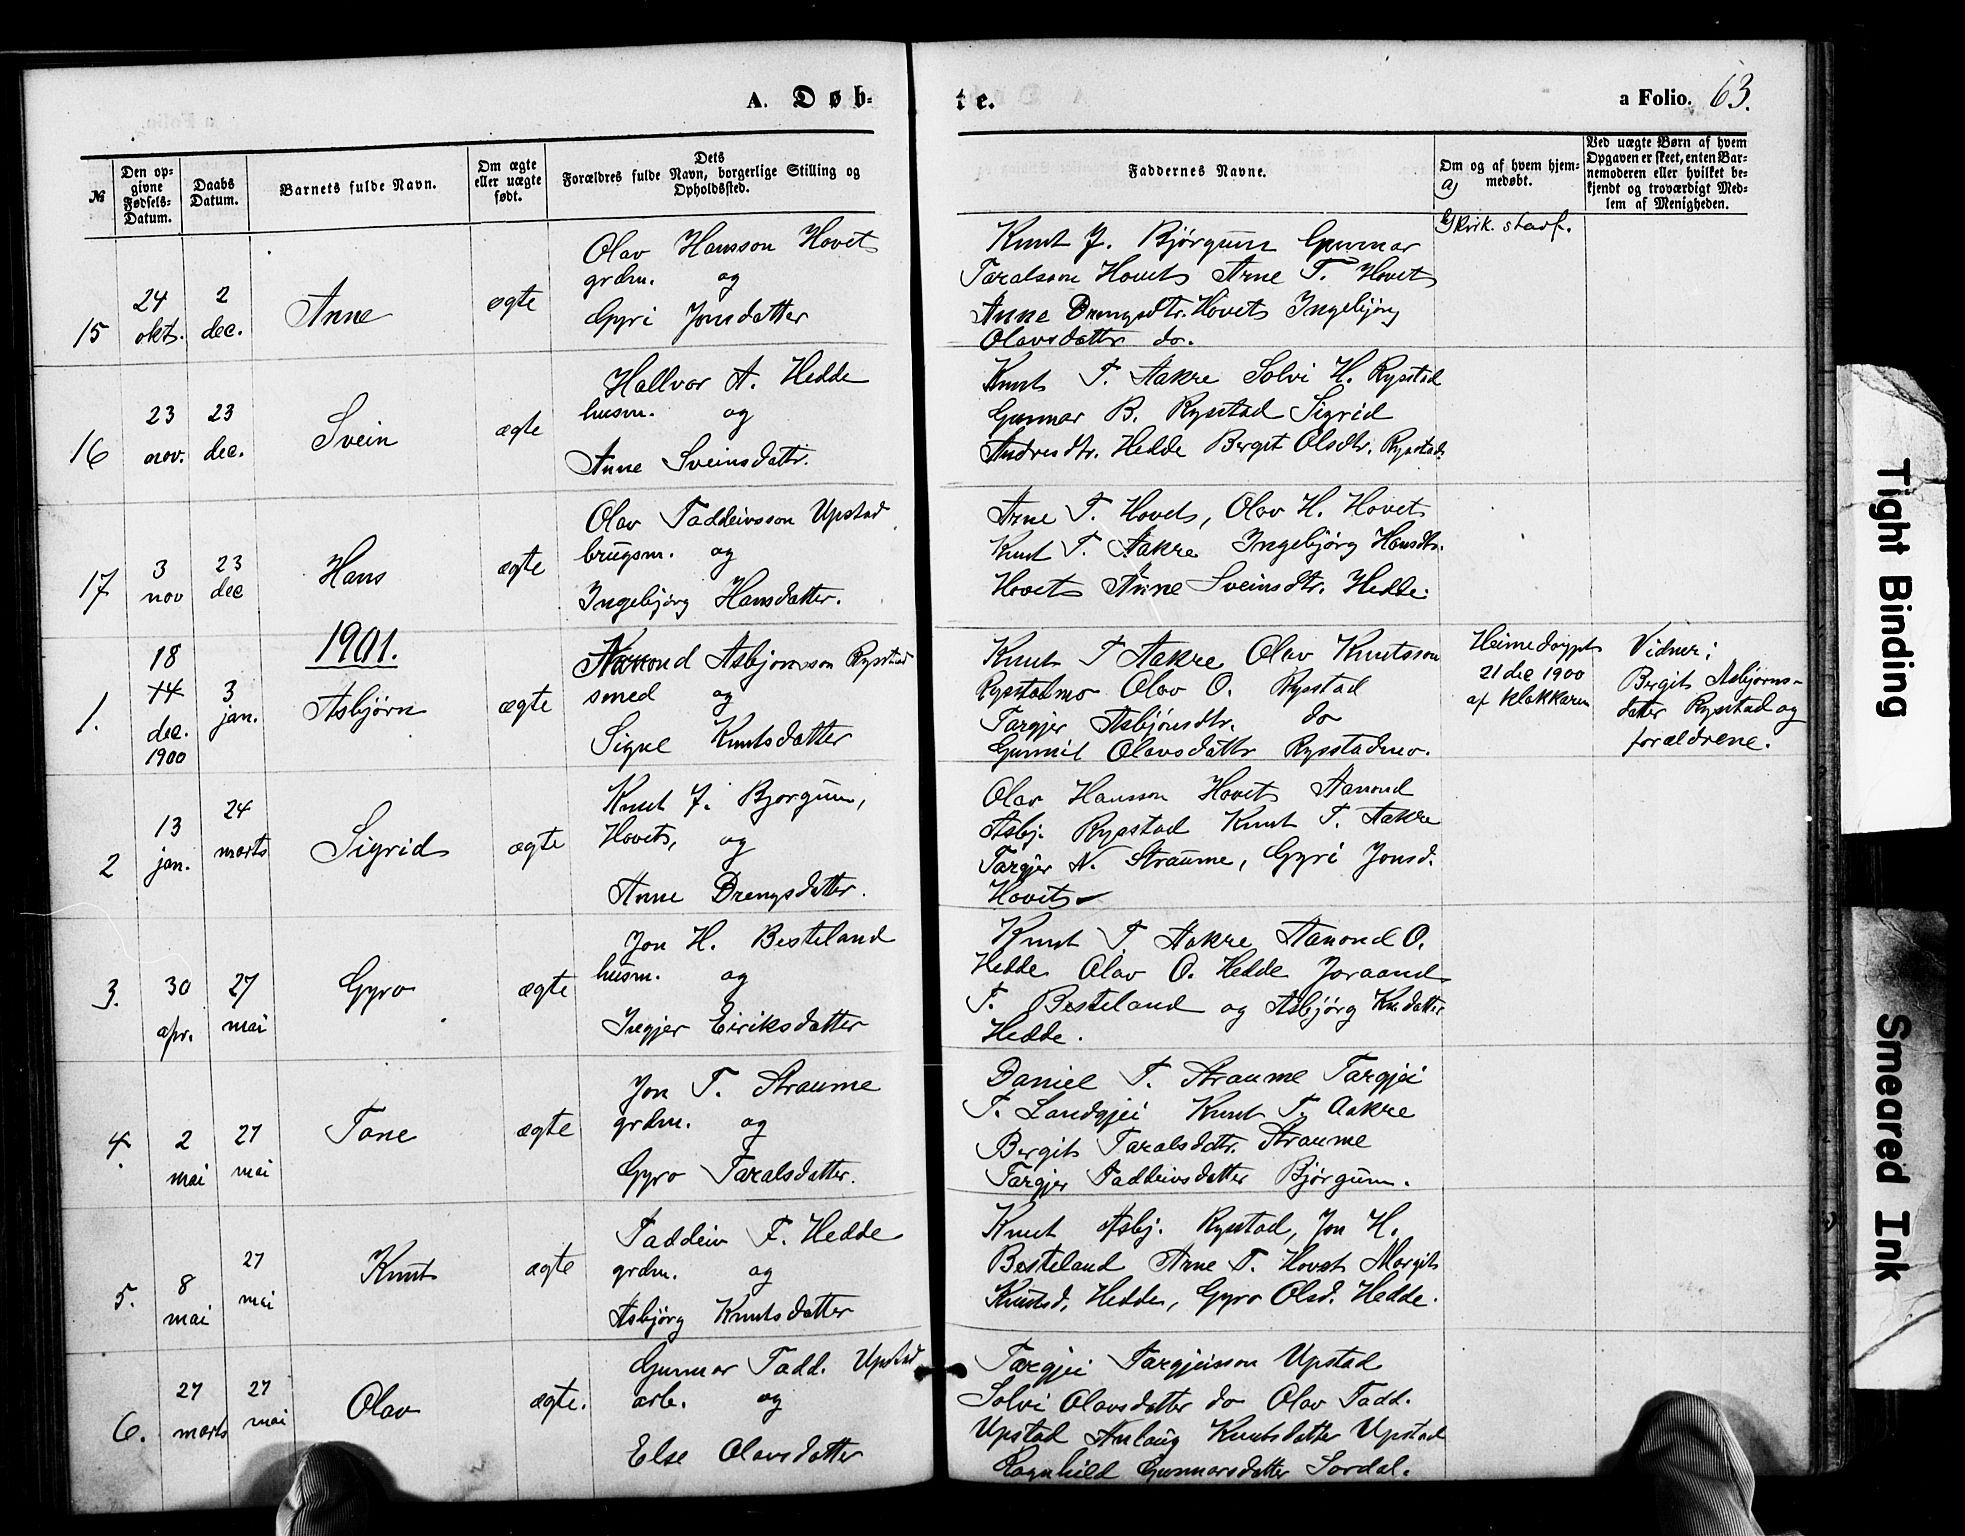 A. Døb-
te.
a Folio. 63.
№
Den op-
givne
Fødsels-
Datum.
Daabs
Datum.
Barnets fulde Navn.
Om ægte
eller uægte
født.
Dets
Forældres fulde Navn, borgerlige Stilling og
Opholdssted.
Faddernes Navne.
Om og af hvem hjem-
medøbt.
a)
b) kirk. stadf.
Ved uægte Børn af hvem
Opgaven er skeet, enten Bar-
nemoderen eller hvilket be-
kjendt og troværdigt Med-
lem af Menigheden.
15
24
okt.
2
dec.
Anne
ægte
Olav Hansson Hovet
grdm. og
Gyri Jonsdatter
Knut J. Bjørgum Gunnar
Taralsson Hovet Arne T. Hovet
Anne Drengsdtr. Hovet Ingebjörg
Olavsdattr do.
16
23
nov.
23
dec.
Svein
ægte
Hallvor A. Hedde
husm. og
Anne Sveinsdattr.
Knut T. Aakre Solvi H. Rysstad
Gunnar B. Rysstad Sigrid
Andresdtr. Hedde Bergit Olsdtr. Rysstad
17
3
nov
23
dec
Hans
ægte
Olav Taddeivsson Upstad
brugsm. og
Ingebjörg Hansdatter.
Arne T. Hovet, Olav H. Hovet
Knut T. Aakre Ingebjörg Hansdtr.
Hovet Anne Sveinsdtr. Hedde.
1901.
1.
18
14
dec.
1900
3
jan.
Asbjørn
ægte
Aanond Asbjørnsson Rysstad
smed og
Signe Knutsdatter
Knut T Aakre Olav Knutsson
Rysstadmo Olav O. Rysstad
Targjer Asbjönsdtr. do
Gunnil Olavsdattr Rysstadmo.
Heimedöypt
21 dec 1900
af klokkaren
Vidner:
Bergit Asbjørns-
datter Rysstad og
forældrene.
2
13
jan.
24
marts
Sigrid
ægte
Knut J. Bjorgum,
Hovet, og
Anne Drengsdatter.
Olav Hansson Hovet Aanond
Asbj. Rysstad Knut T. Aakre
Targjer N. Straume, Gyri Jonsd.
Hovet
3.
30
apr.
27
mai
Gyro
ægte
Jon H. Besteland
husm. og
Ingjer Eiriksdatter
Knut T. Aakre Aanond O.
Hedde Olav O. Hedde Joraand
T. Besteland og Asbjörg Kn.datter
Hedde.
4.
2
mai
27
mai
Tone
ægte
Jon T. Straume
grdm. og
Gyro Taralsdatter.
Daniel T. Straume Targjei
T. Landgjei Knut T. Aakre
Bergit Taralsdatr. Straume
Targjer Taddeivsdatter Bjørgum.
5.
8
mai
27
mai
Knut
ægte
Taddeiv T. Hedde
grdm. og
Asbjörg Knutsdatter
Knut Asbj. Rysstad, Jon H.
Besteland Arne T. Hovet Margit
Knutsd. Hedde, Gyro Olsd. Hedde.
6.
27
marts
27
mai
Olav
ægte.
Gunnar Tadd. Upstad
arb. og
Else Olavsdatter
Targjei Targjeisson Upstad
Solvi Olavsdatter do Olav Tadd.
Upstad Anlaug Knutsdatter Upstad
Ragnhild Gunnarsdatter Sordal.
Tight Binding
Smeared Ink